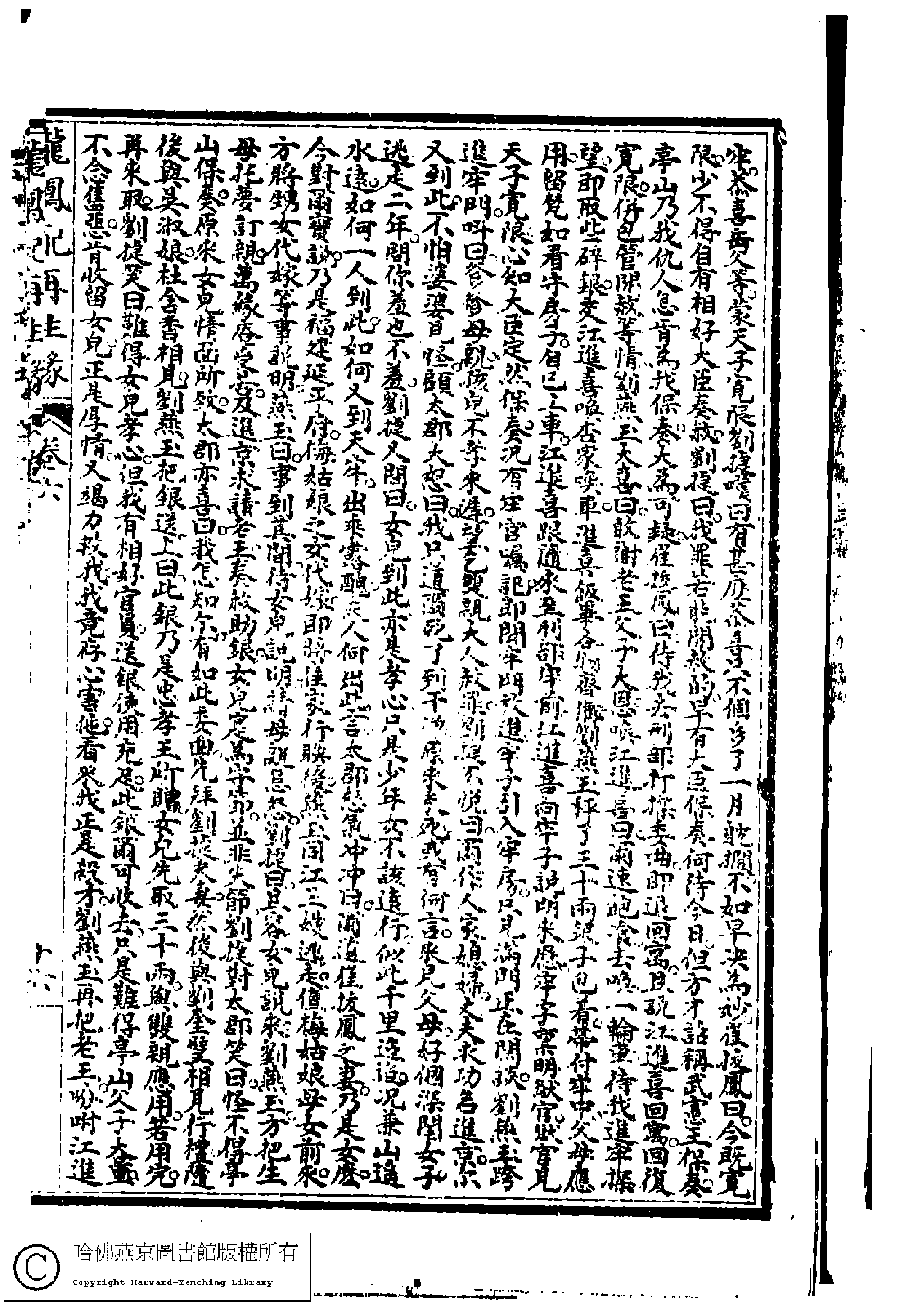 坐。恭喜岳父等蒙天子寬限。劉捷嘆曰有甚庅恭喜。只不個多了一月躭擱。不如早决為妙。崔振鳳曰今既寬
限。少不得自有相好大臣奏救。劉捷曰我罪若能開赦的。早有大臣保奏。何待今日。但方才詔稱武憲王保奏。
亭山乃我仇人。怎肯為我保奏。大為可疑。崔振鳳曰待我去刑部打探委曲。即進回寓。且説江進喜回寓。回復
寬限併包管開赦等情。劉燕玉大喜曰。敢謝老王父子大恩。喚江進喜曰爾速飽飡去喚一輪車。待我進牢探
望。即取些碎銀交江進喜喚店家喚車進具飯畢。各齊備劉燕玉秤了三十兩銀子。包着帶付牢中父母應
用。留梵如看守房子。自己上車。江進喜跟隨。來至刑部牢前。江進喜向牢子説明來歷。牢子禀明獄官。獄官見
天子寬限。心知大臣定然保奏。况有狴官囑託。即開牢門放進。牢子引入牢房。只見滿門正在閒談。劉燕玉跨
進牢門。呌曰爹爹母親。孩兒不孝來遲。望乞雙親大人赦罪。劉捷不悦曰。爾係人家媳婦。丈夫求功名進京。
又到此。不怕婆婆見怪。顧太郡大怒曰。我只道溺死了到不 原來未死。我有何言來見父母。好個深閨女子
逃走二年。問你羞也不羞。劉捷又問曰女兒到此。亦是孝心。只是少年女不該遠行。似此千里迢遞。况兼山遙
水遠。如何一人到此。如何又到天牢。出來露醜。夫人何出此言。太郡怒氣冲冲曰。爾道崔振鳳之妻。乃是女庅。
今對爾實説。乃是福建延平府梅姑娘之女代嫁。即將佳家行聘後。燕玉同江三嫂逃走。值梅姑娘母女前來。
方將甥女代嫁等事説明。燕玉曰。事到其間。待女兒説明。請母親息怒。劉捷曰。且容女兒説來。劉燕玉方把生
母托夢訂親。萬緣庵堂受苦。進京求請老王奏赦。助銀。女兒定為字第。並非失節。劉捷對太郡笑曰。怪不得亭
山保奏。原來女兒情面所致。太郡亦喜曰。我怎知尔有如此委曲。先拜劉捷夫妻。然後與劉奎璧相見。行禮隨
後與吳淑娘杜含香相見。劉燕玉把銀送上曰。此銀乃是忠孝王所贈。女兒先取三十兩。與雙親應用。若用完。
再來取。劉捷笑曰難得女兒孝心。但我有相好官員送銀。使用充足。此銀爾可收去。只是難得亭山父子大量。
不念舊惡。肯收留女兒。正是厚情。又竭力救我。我竟存心害他。看來我正是殺才。劉燕玉再把老王吩咐江進
龍鳳配再生緣 卷六
十六
哈佛燕京圖書館版權所有
Copyright Harvard-Yenching Library